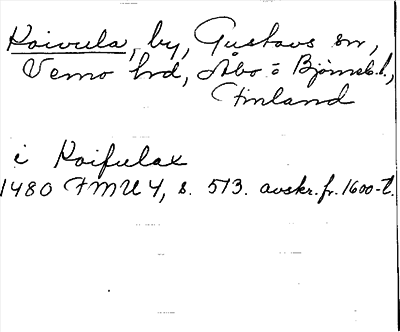 Koivula, by, Gustavs sn,
Vemo hrd, Åbo o Björneb. l.,
Finland
i Koifulax
1480 FMU 4, s. 573. avskr. fr. 1600-t.